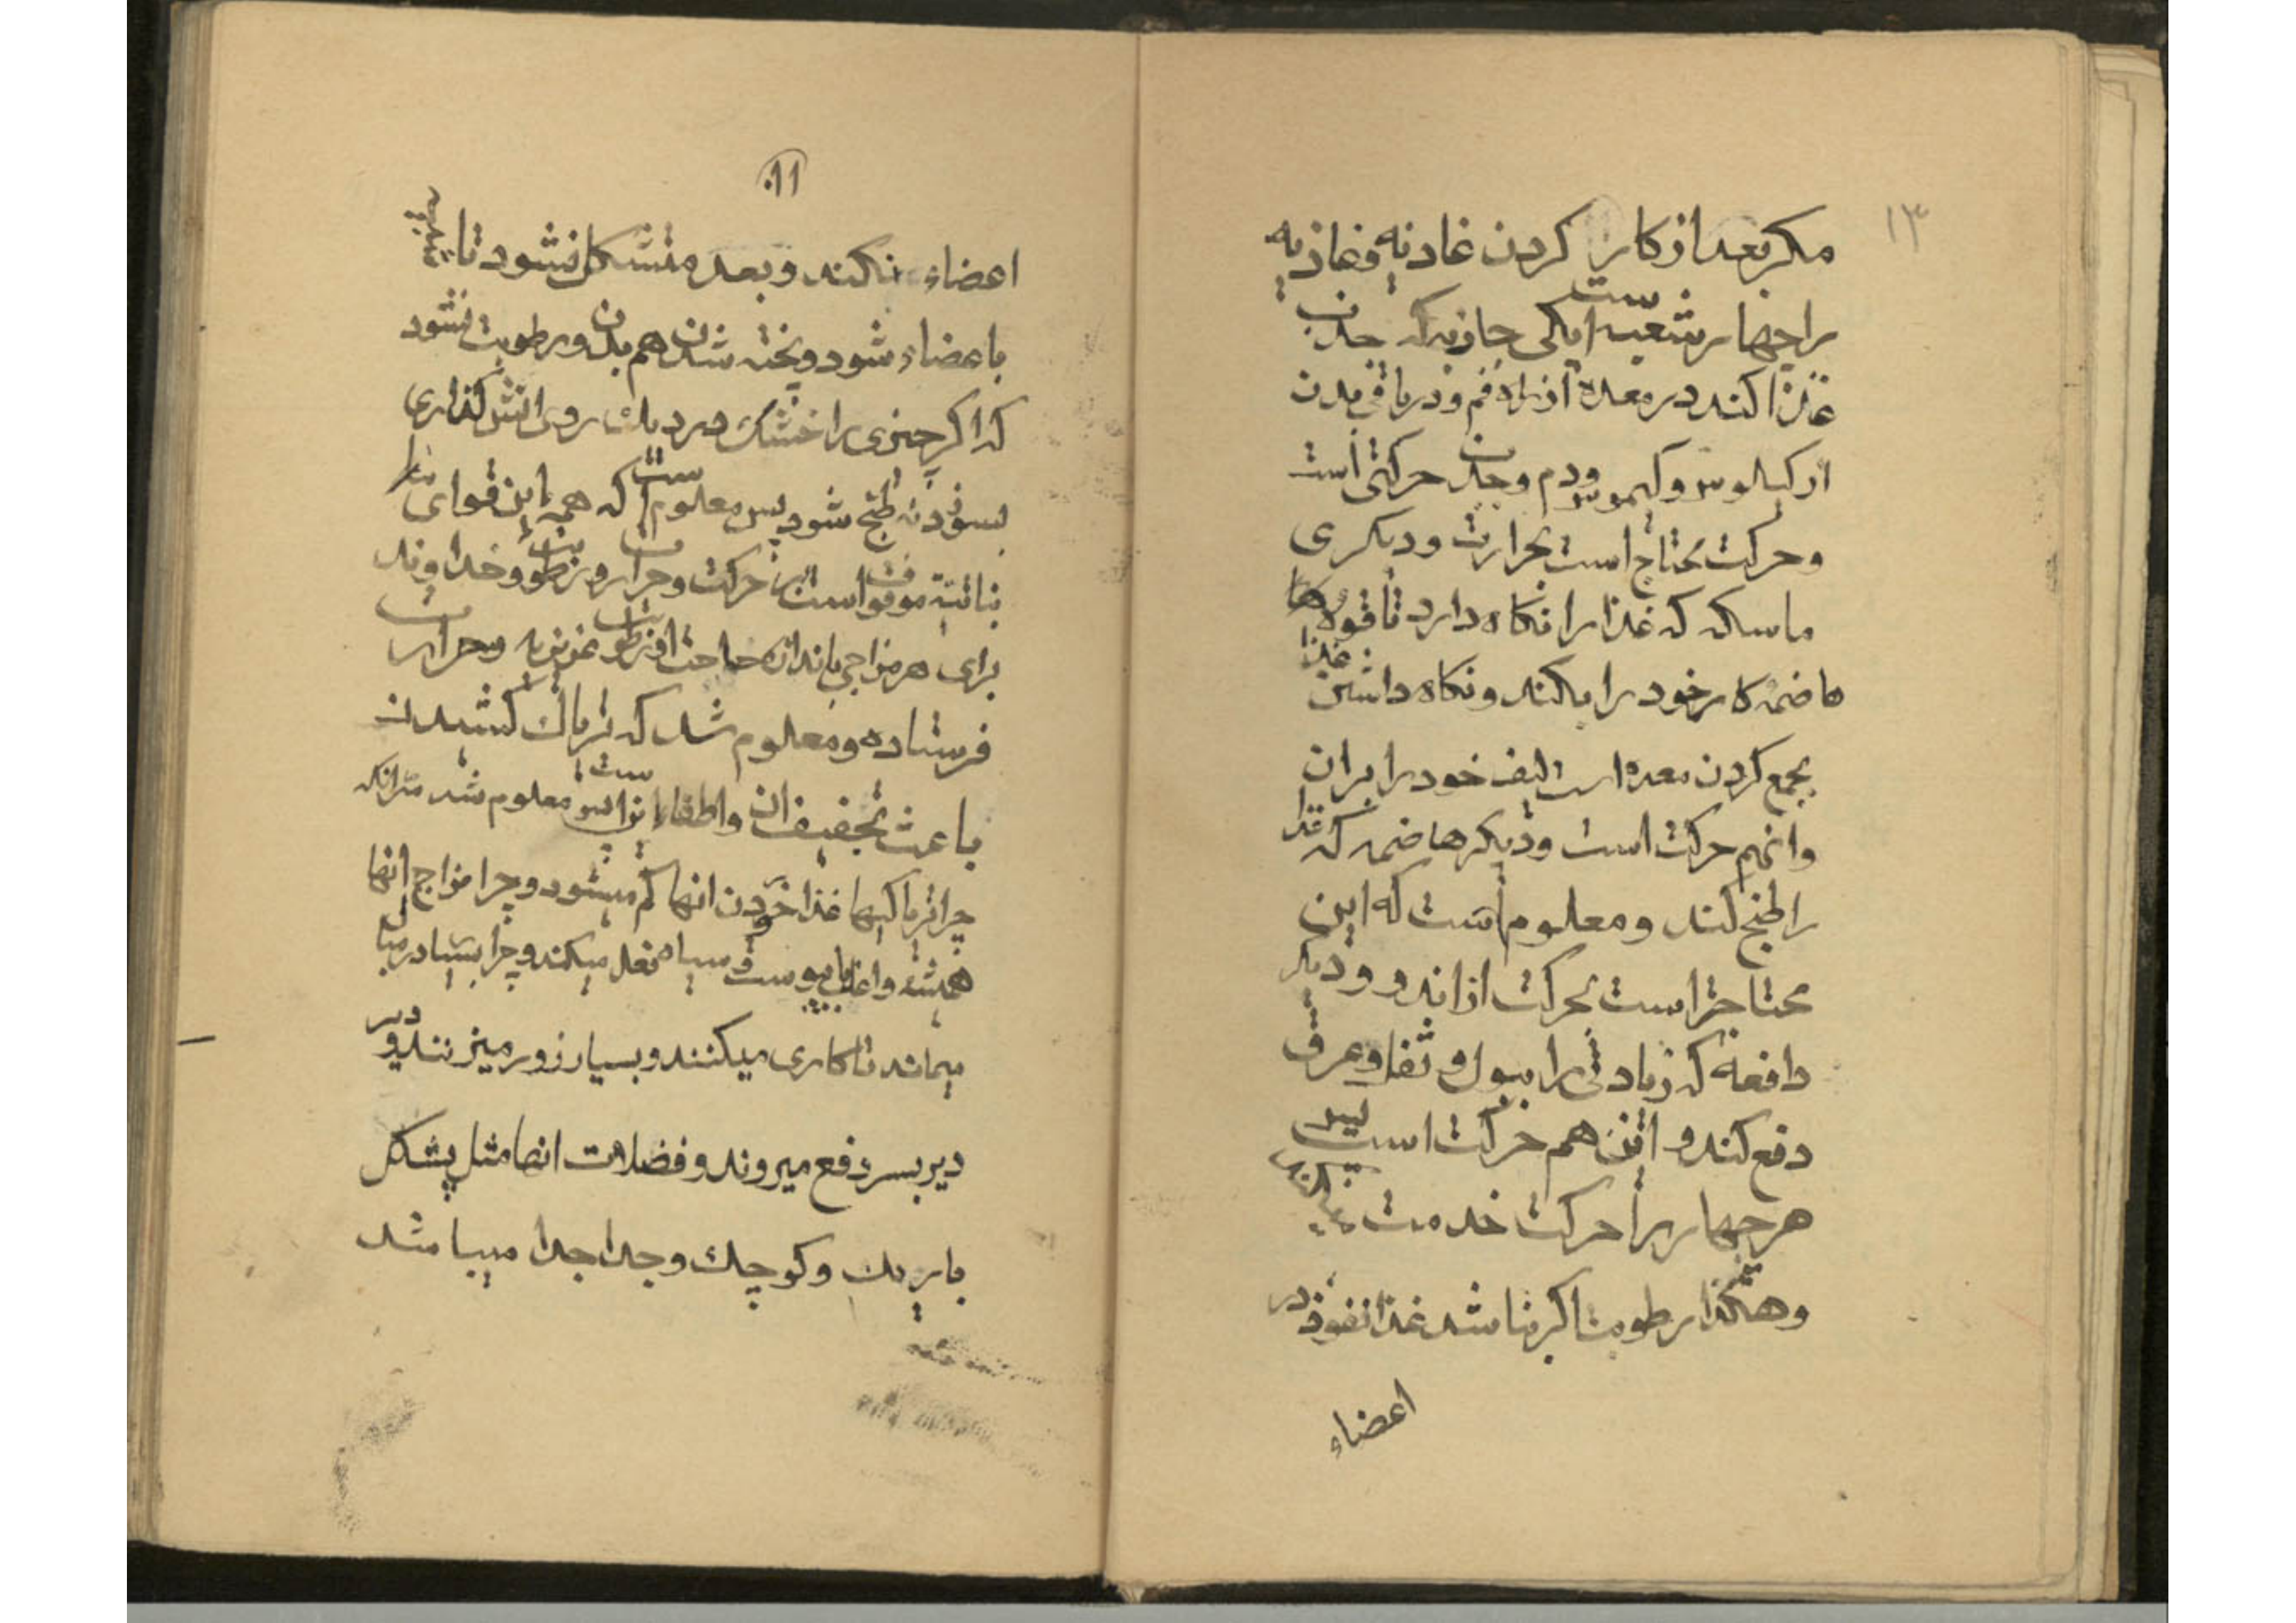 ۱۳
مکر بعد از کار کردن غادنه و غاذیه
را چهار شعبه است یکی جاذبه که جذب
غذا کند در معده از راه فم و در باقی بدن
از کیلوس و کیموس ودم وجذب حرکتی است
و حرکت محتاج است بحرارت و دیکری
ماسکه که غذا را نکاه دارد تا قوه
هاضمه کار خود را بکند و نکاه داشتن غذا
بجمع کردن معده است لیف خود را بران
وانهم حرکت است و دیکر هاضمه که غذا
را طبخ کند و معلوم است که این
محتاجتر است بحرکت از اندو و دیکر
دافعه که زیادتی را ببول و ثفل و عرق
دفع کند و این هم حرکت است پس
هر چهار را حرکت خدمت
و هکذا رطوبت اکر نباشد غذا نفوذ در
اعضاء
۱۱
اعضاء نکند و بعد متشکل نشود تا
باعضاء شود و پخته شدن هم بدون رطوبت نشود
که اکر چیزی را خشک در دیک روی اتش کذاری
بسوزد نه طبخ شود پس معلوم است که همه این قوای
نباتیه موقوف است بر حرکت و حرارت و رطوبت و خداوند
برای هر مزاجی باندازه حاجت او رطوبت غریزیه و حرارت
فرستاده و معلوم شد که تریاک کشیدن
باعث تجفیف ان و اطفاء این است معلوم شد سر انکه
چرا تریاکیها غذا خوردن انها کم میشود و چرا مزاج انها
همیشه و اغلب یبوست و سیاه فعل میکند و چرا بسیار در مبال
میمانند تا کاری میکنند و بسیار زور میزنند و دیر
دیر بسر دفع میروند و فضلات انها مثل پشکل
باریک و کوچک و جدا جدا میباشد